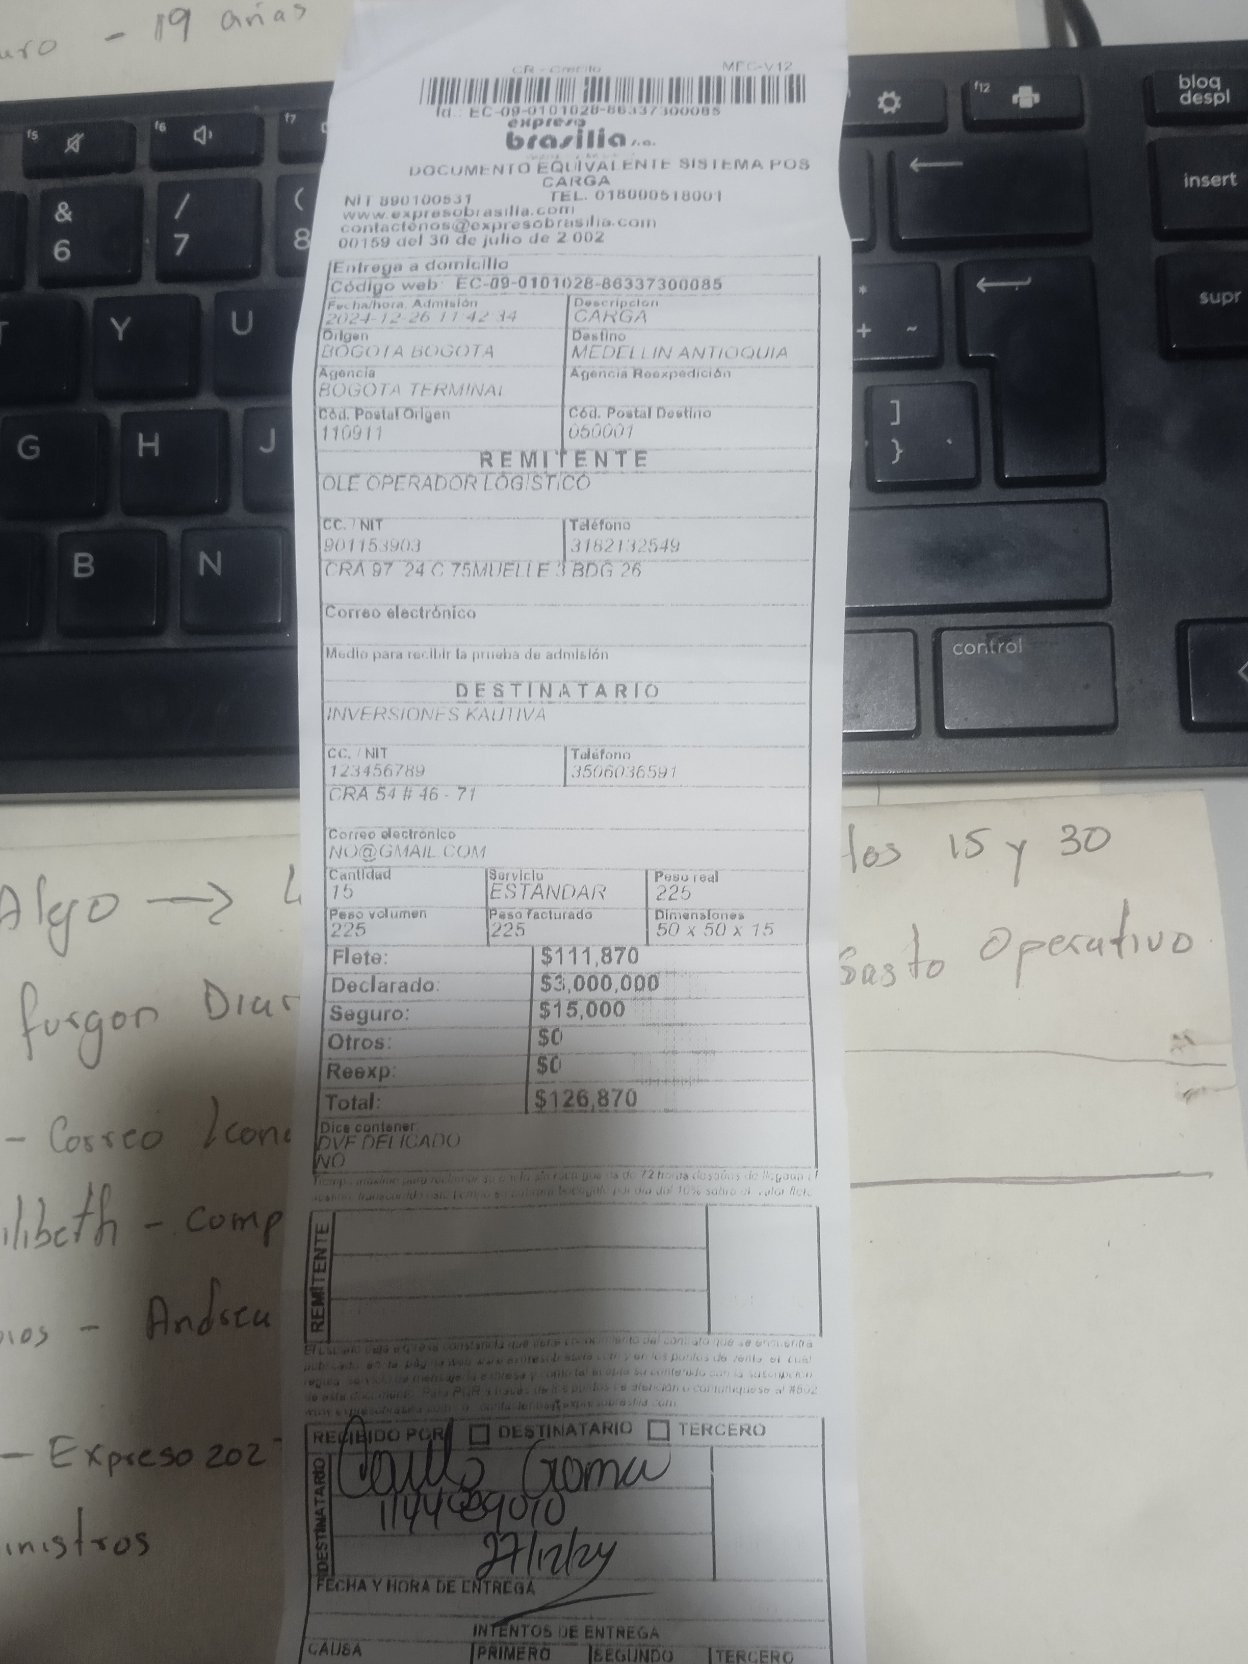 19 años
CR - Credito MFC-V12
Id.: EC-09-0101028-86337300085
expreso
brasilia s.a.
DOCUMENTO EQUIVALENTE SISTEMA POS
CARGA
NIT 890100531 TEL. 018000518001
www.expresobrasilia.com
contactenos@expresobrasilia.com
00159 del 30 de julio de 2.002
Entrega a domicilio
Código web: EC-09-0101028-86337300085
Fecha/hora. Admisión Descripcion
2024-12-26 11:42:34 CARGA
Origen Destino
BOGOTA BOGOTA MEDELLIN ANTIOQUIA
Agencia Agencia Reexpedición
BOGOTA TERMINAL
Cód. Postal Origen Cód. Postal Destino
110911 050001
REMITENTE
OLE OPERADOR LOGISTICO
CC. / NIT Teléfono
901153903 3182132549
CRA 97 24 C 75MUELLE 3 BDG 26
Correo electrónico
Medio para recibir la prueba de admisión
DESTINATARIO
INVERSIONES KAUTIVA
CC. / NIT Teléfono
123456789 3506036591
CRA 54 # 46 - 71
Correo electrónico
NO@GMAIL.COM
Cantidad Servicio Peso real
15 ESTANDAR 225
Peso volumen Peso facturado Dimensiones
225 225 50 x 50 x 15
Flete: $111,870
Declarado: $3,000,000
Seguro: $15,000
Otros: $0
Reexp: $0
Total: $126,870
Dice contener:
DVF DELICADO
NO
REMITENTE
RECIBIDO POR DESTINATARIO TERCERO
DESTINATARIO
27/12/24
FECHA Y HORA DE ENTREGA
INTENTOS DE ENTREGA
CAUSA PRIMERO SEGUNDO TERCERO
los 15 y 30
Algo →
Gasto Operativo
furgon
- Correo
- comp
- Andrea
- Expreso 202
f5 f6 f7 f12
bloq
despl
insert
supr
control
& 6
/ 7
( 8
Y U
G H J
B N
* + ~
] }